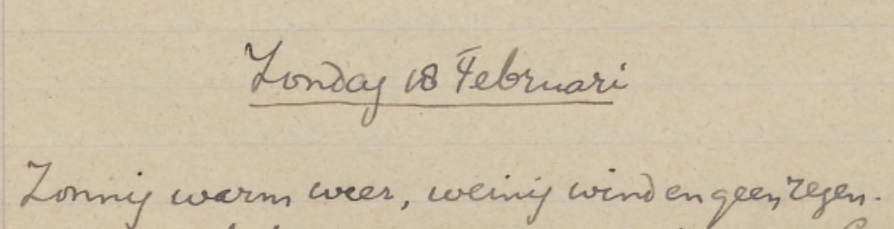 Zondag 18 Februari
Zonnig warm weer, weinig wind en geen regen.